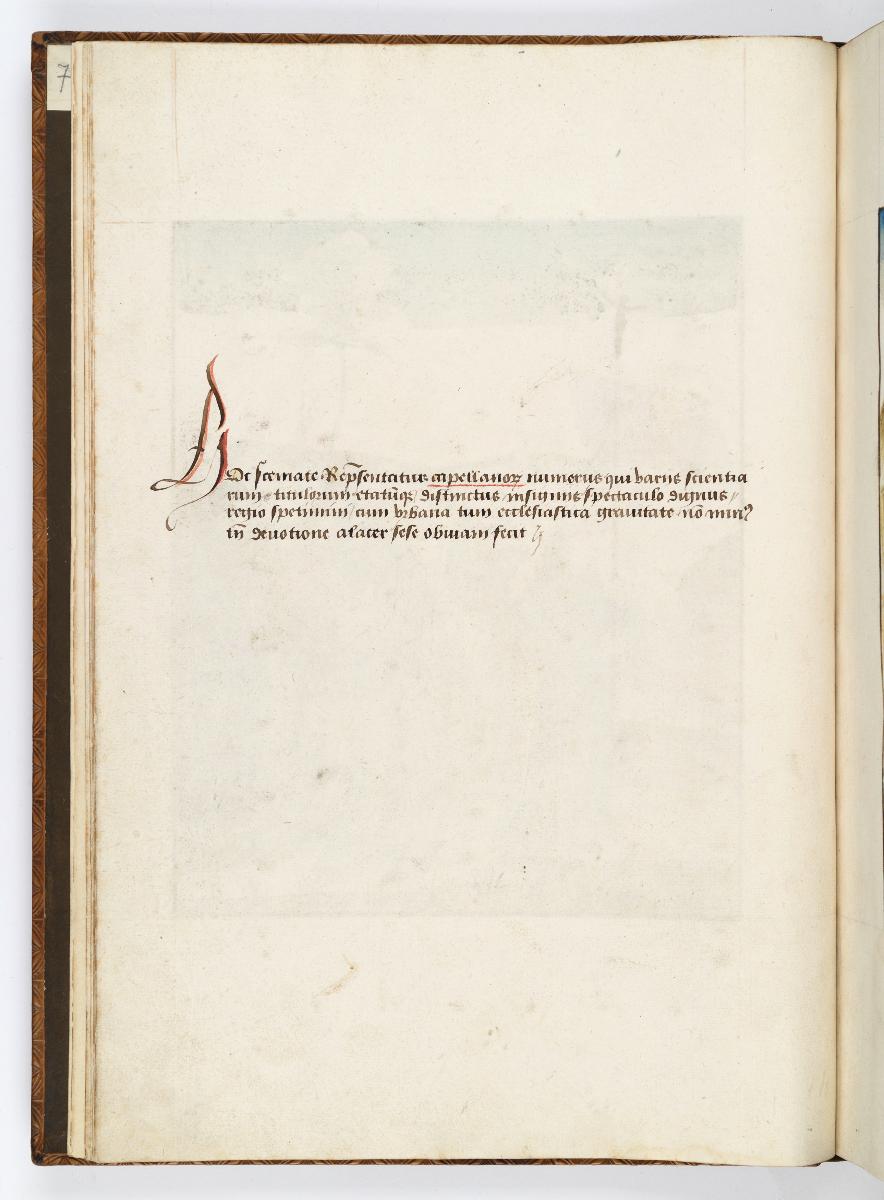 7
HOc scemate Rep̄sentatur capellanoꝝ numerus qui varijs scientia
rum / titulorum etatūqꝫ / distinctus insignis spectaculo dignus /
regio spetimini / cum vrbana tum ecclesiastica grauitate nō minꝰ
in̄ deuotione alacer sese obuiam fecit